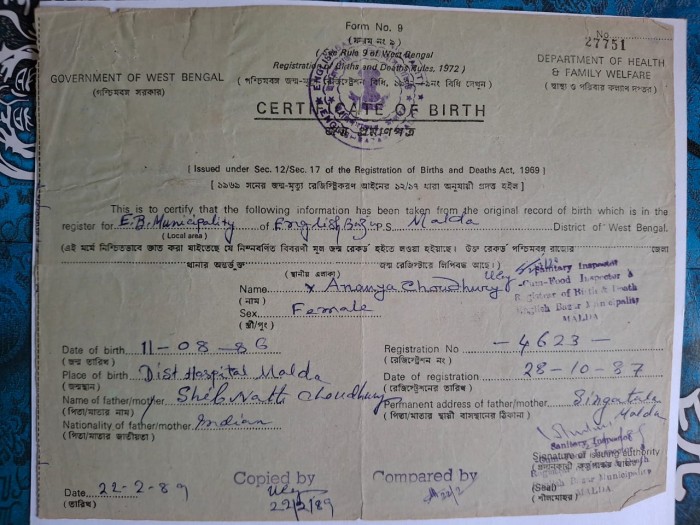 Form No. 9
(ফরম নং ৯)
(See Rule 9 of West Bengal
Registration of Births and Deaths Rules, 1972)
No.
27751
GOVERNMENT OF WEST BENGAL
(পশ্চিমবঙ্গ সরকার)
DEPARTMENT OF HEALTH
& FAMILY WELFARE
(স্বাস্থ্য ও পরিবার কল্যাণ দপ্তর)
CERTIFICATE OF BIRTH
জন্ম প্রমাণপত্র
[Issued under Sec. 12/Sec. 17 of the Registration of Births and Deaths Act, 1969]
[১৯৬৯ সনের জন্ম-মৃত্যু রেজিস্ট্রিকরণ আইনের ১২/১৭ ধারা অনুযায়ী প্রদত্ত হইল]
This is to certify that the following information has been taken from the original record of birth which is in the
register for E.B. Municipality of English Bazar P.S. Malda District of West Bengal.
(Local area)
(এই মর্মে নিশ্চিতভাবে জ্ঞাত করা যাইতেছে যে নিম্নবর্ণিত বিবরণী মূল জন্ম রেকর্ড হইতে লওয়া হইয়াছে। উক্ত রেকর্ড পশ্চিমবঙ্গ রাজ্যের জেলা
থানার অন্তর্ভুক্ত জন্ম রেজিস্টারে লিপিবদ্ধ আছে।)
(স্থানীয় এলাকা)
Name x Ananya Choudhury
(নাম)
Sanitary Inspector
-Cum-Food Inspector &
Registrar of Birth & Death
English Bazar Municipality
MALDA
Sex Female
(স্ত্রী/পুং)
Date of birth 11-08-86 Registration No - 4623 -
(জন্ম তারিখ) (রেজিস্ট্রেশন নং)
Place of birth Dist Hospital Malda Date of registration 28-10-87
(জন্মস্থান) (রেজিস্ট্রেশনের তারিখ)
Name of father/mother Shib Nath Choudhury Permanent address of father/mother Singatala
(পিতা/মাতার নাম) (পিতা/মাতার স্থায়ী বাসস্থানের ঠিকানা) Malda
Nationality of father/mother Indian
(পিতা/মাতার জাতীয়তা)
Sanitary Inspector
Signature of issuing authority
English Bazar Municipality
(Seal) MALDA
(শীলমোহর)
Copied by Compared by
Date 22-2-89 22/2/89 22/2
(তারিখ)